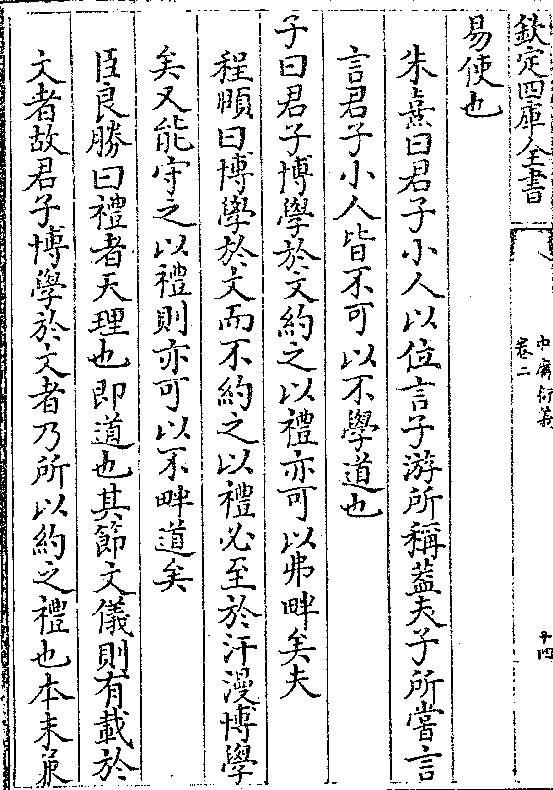 欽定四庫全書
中庸衍義
卷二
十四
易使也
朱熹曰君子小人以位言子游所稱葢夫子所嘗言
言君子小人皆不可以不學道也
子曰君子博學於文約之以禮亦可以弗畔矣夫
程頤曰博學於文而不約之以禮必至於汗漫博學
矣又能守之以禮則亦可以不畔道矣
臣良勝曰禮者天理也即道也其節文儀則有載於
文者故君子博學於文者乃所以約之禮也本末兼